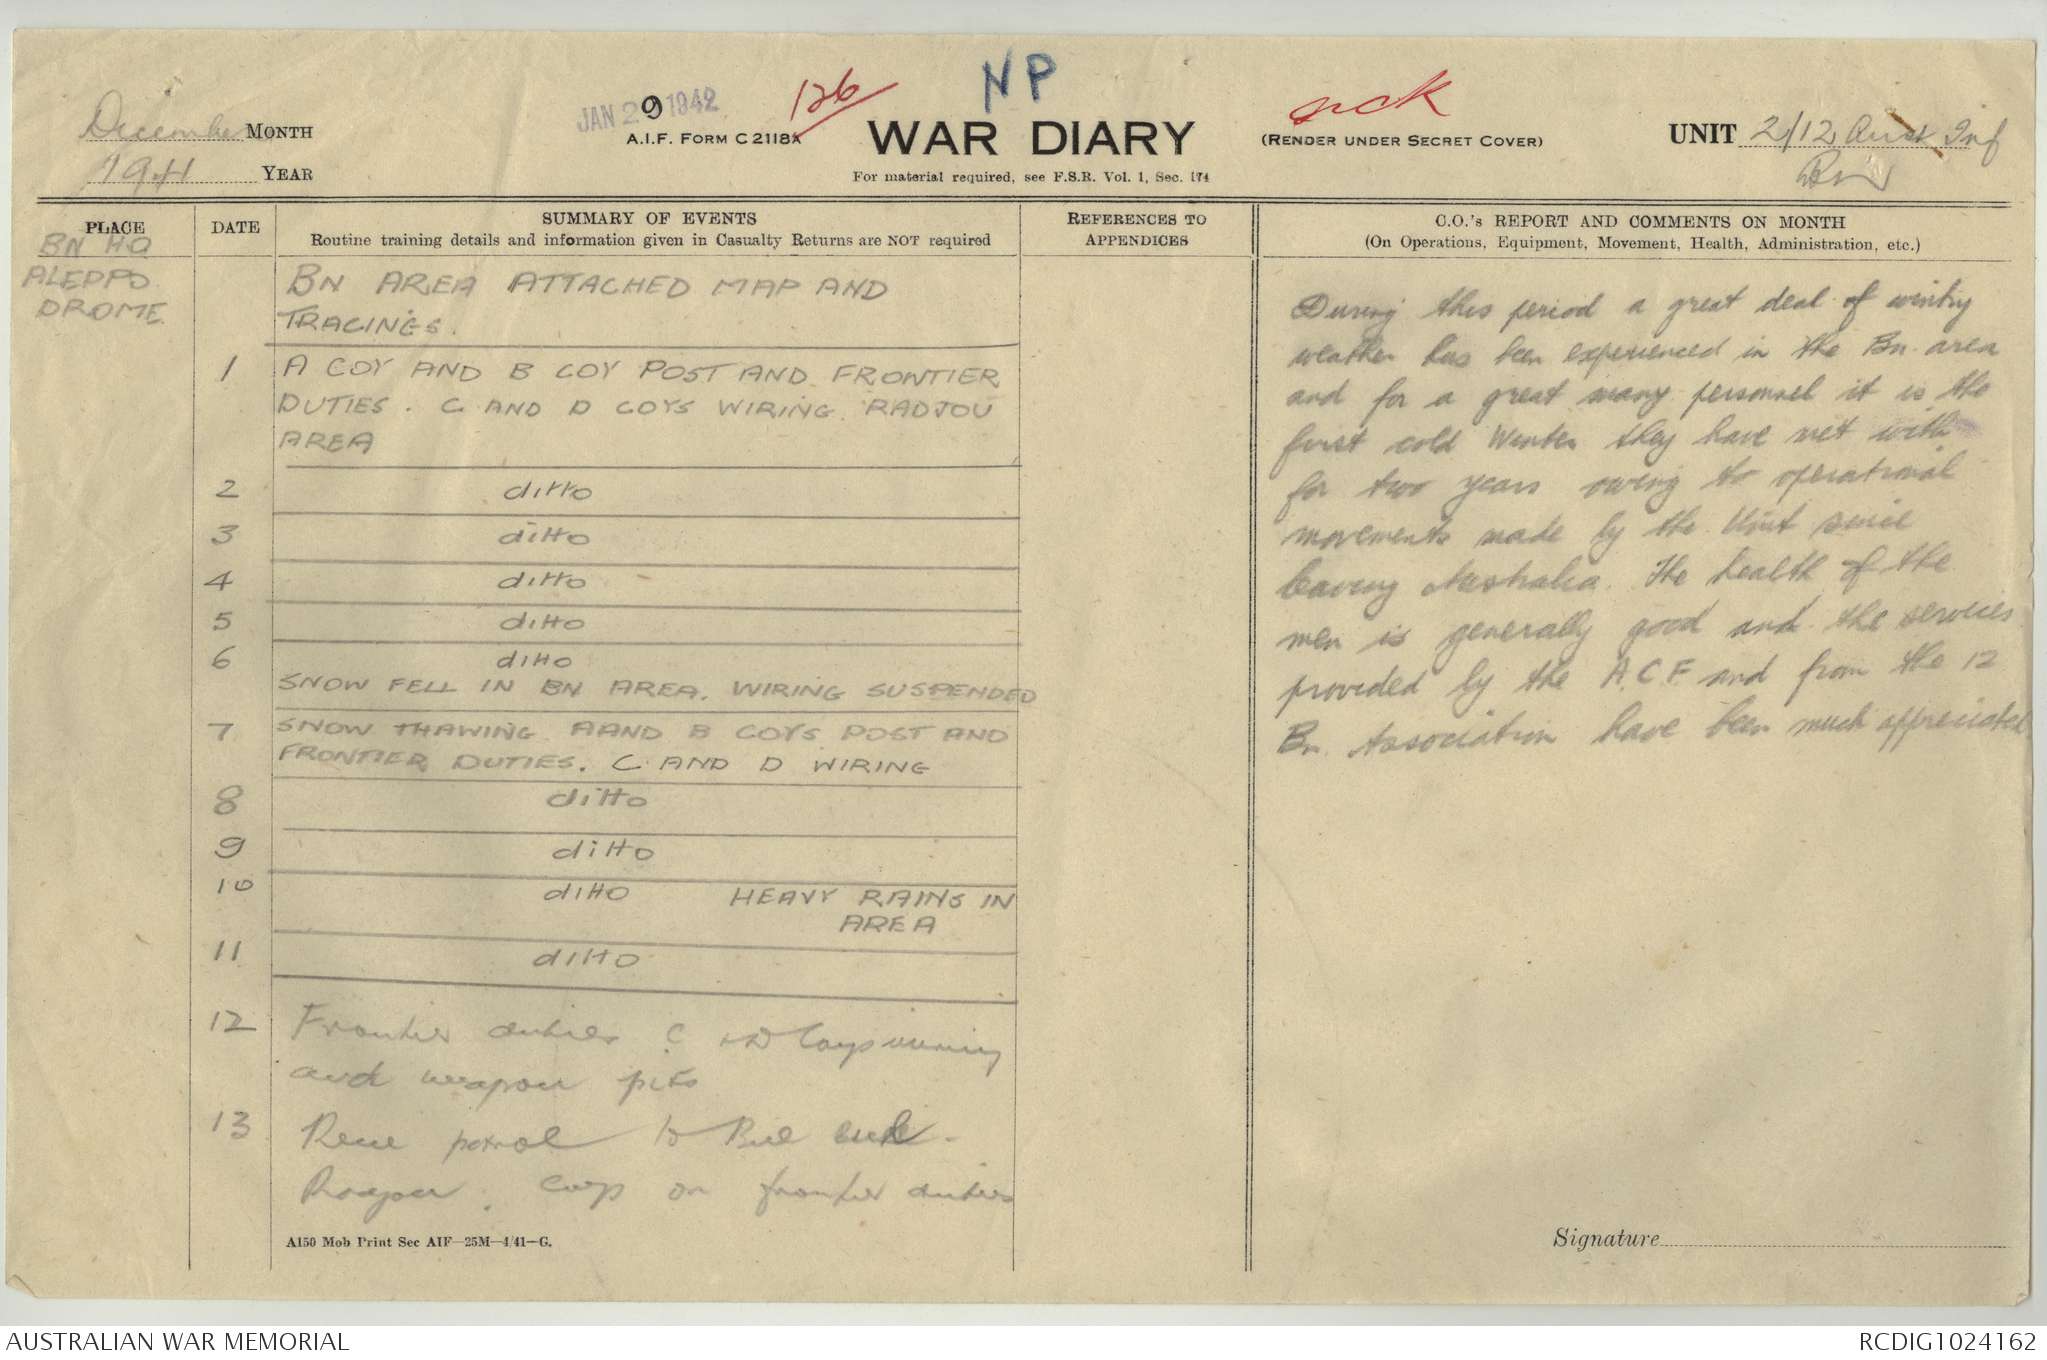 NP
126
JAN 29 1942
December MONTH
1941 YEAR
A.I.F. FORM C 2118A
WAR DIARY
(RENDER UNDER SECRET COVER)
For material required, see F.S.R. Vol. 1, Sec. 174
UNIT 2/12 Aust Inf
Bn
PLACE
DATE
SUMMARY OF EVENTS
Routine training details and information given in Casualty Returns are NOT required
REFERENCES TO
APPENDICES
C.O.'s REPORT AND COMMENTS ON MONTH
(On Operations, Equipment, Movement, Health, Administration, etc.)
BN HQ
ALEPPO
DROME.
BN AREA ATTACHED MAP AND
TRACINGS.
1 A COY AND B COY POST AND FRONTIER
DUTIES. C AND D COYS WIRING RADJOU
AREA
2 ditto
3 ditto
4 ditto
5 ditto
6 ditto
SNOW FELL IN BN AREA. WIRING SUSPENDED
7 SNOW THAWING. A AND B COYS POST AND
FRONTIER DUTIES. C AND D WIRING
8 ditto
9 ditto
10 ditto HEAVY RAINS IN
AREA
11 ditto
12 Frontier duties C & D Coys wiring
and weapon pits
13 Recce patrol to
Coys on frontier duties
During this period a great deal of wintry
weather has been experienced in the Bn. area
and for a great many personnel it is the
first cold Winter they have met with
for two years owing to operational
movements made by the Unit since
leaving Australia. The health of the
men is generally good and the services
provided by the A.C.F. and from the 12
Bn. Association have been much appreciated
Signature
A150 Mob Print Sec AIF—25M—4/41—G.
AUSTRALIAN WAR MEMORIAL
RCDIG1024162